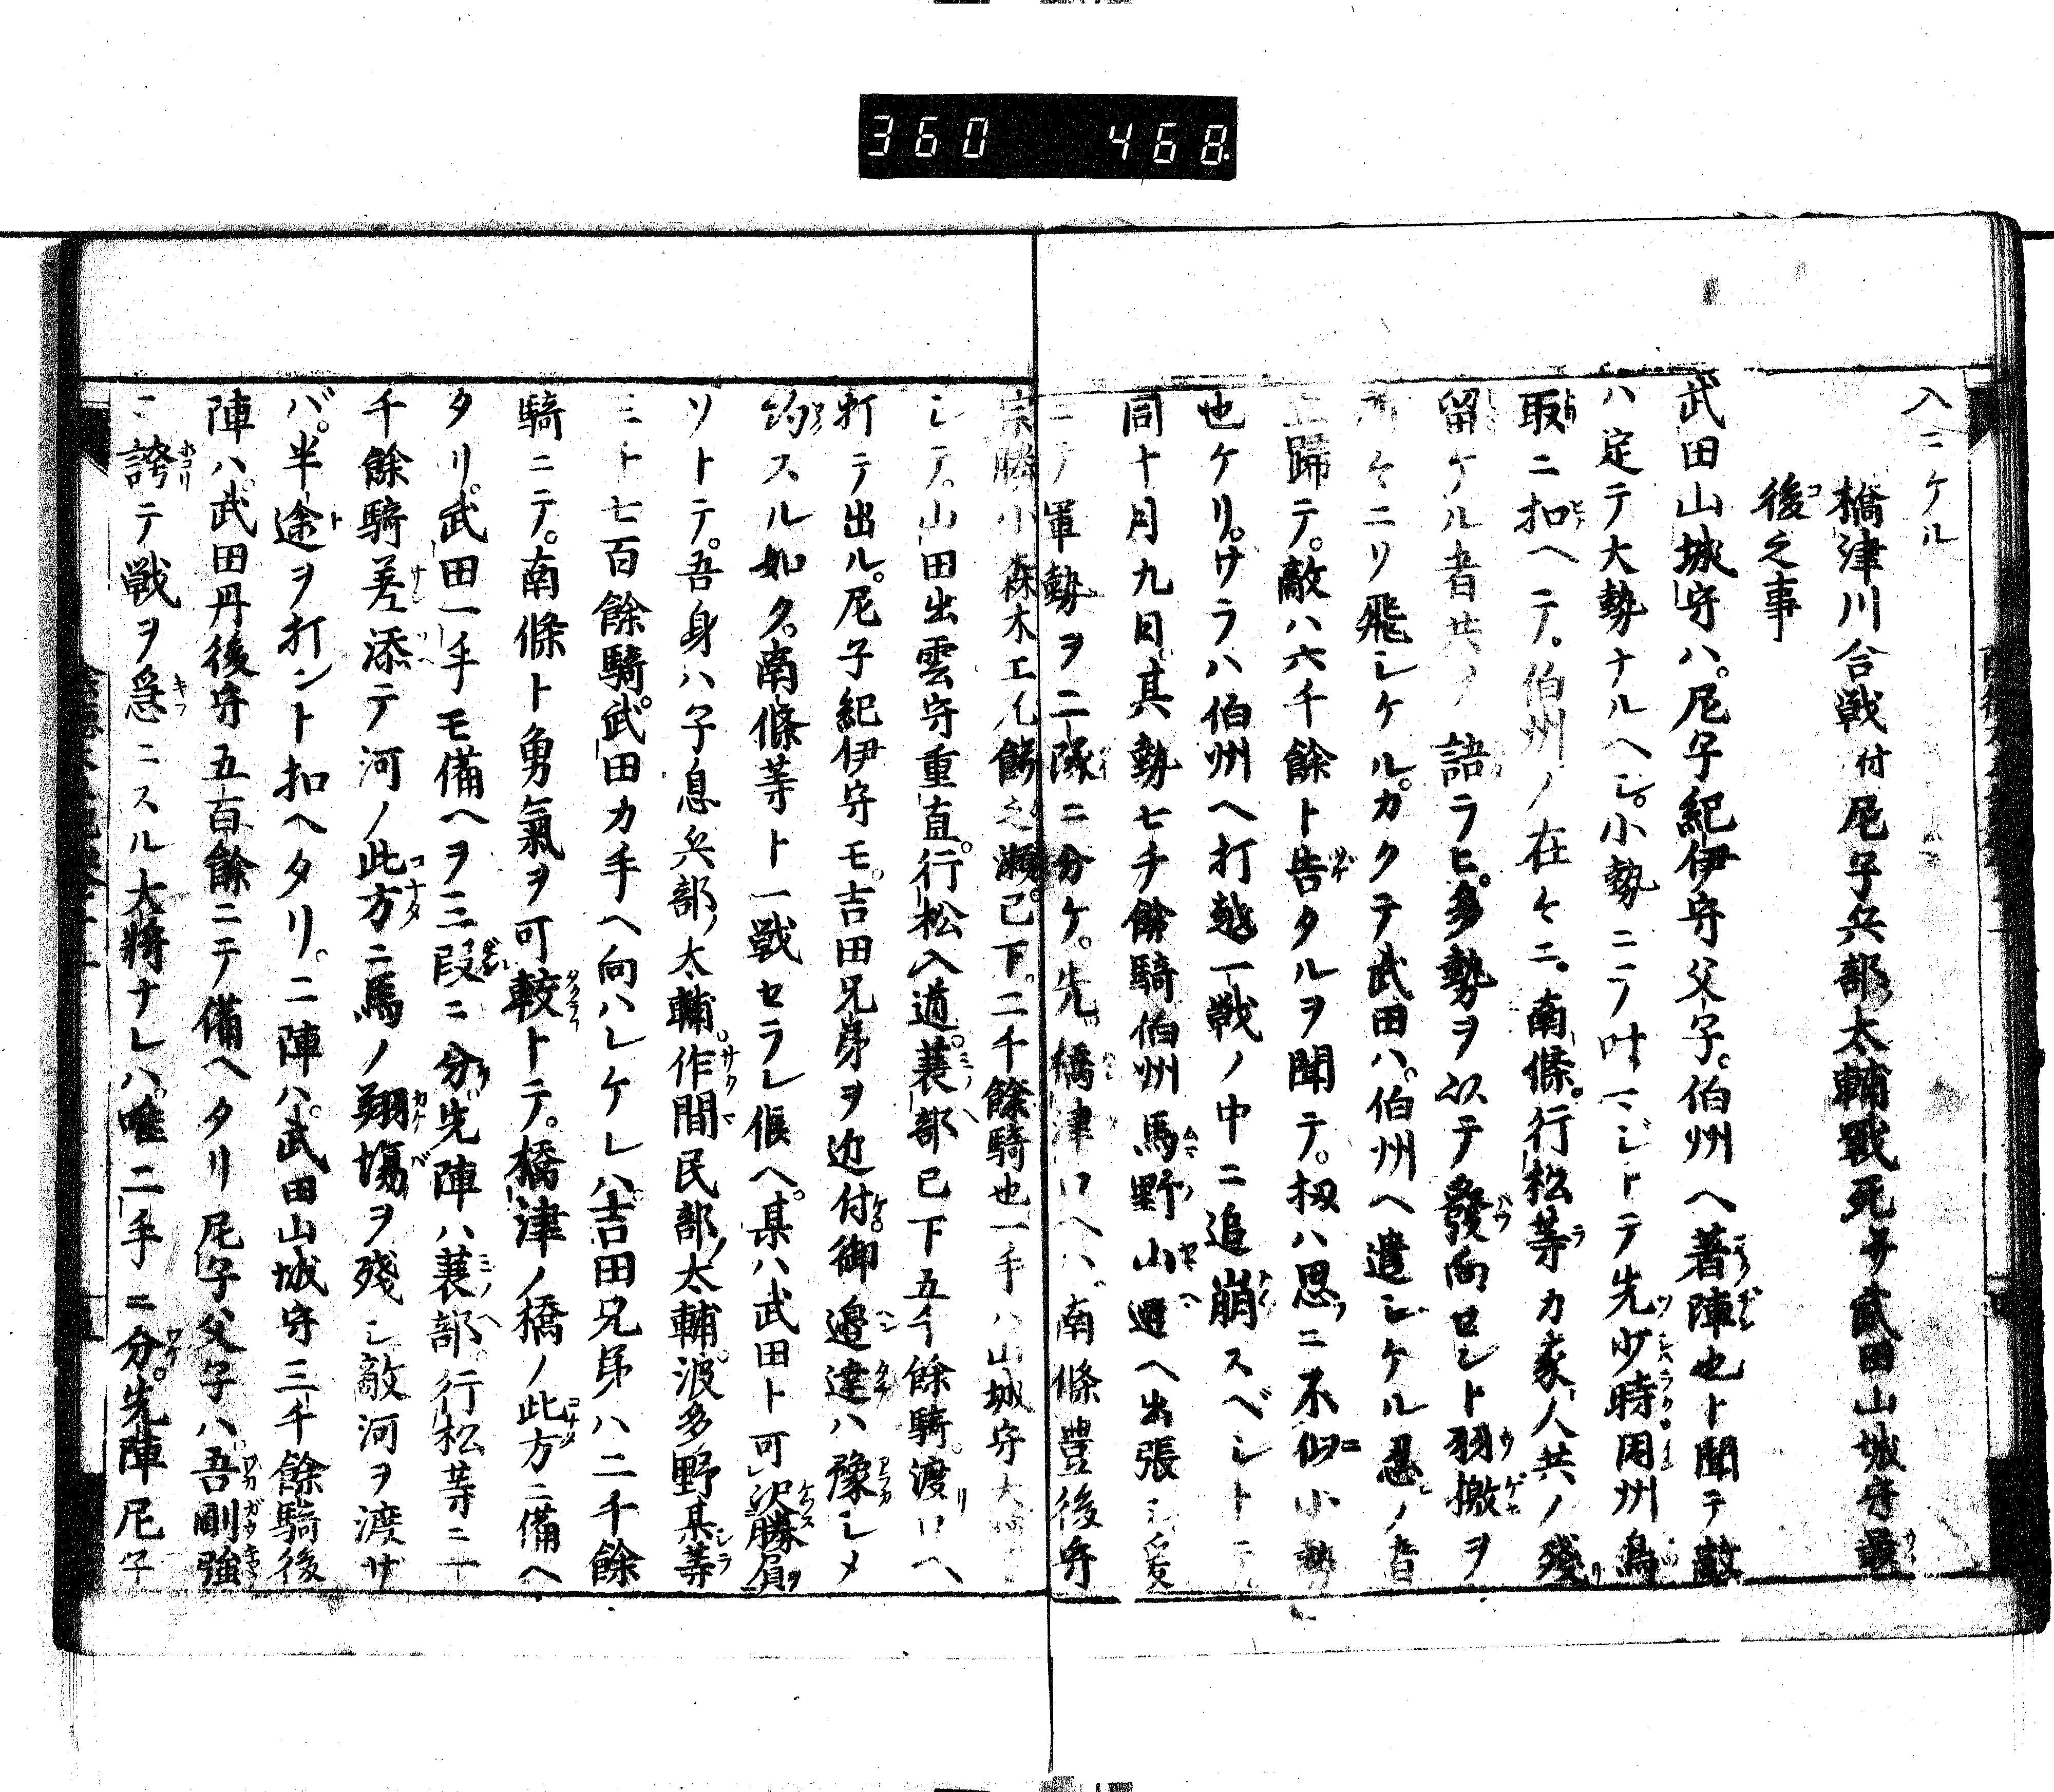 360 468
入ニケル
橋津川合戦付尼子兵部太輔戰死并武田山城守最
後之事
武田山城守ハ。尼子紀伊守父子。伯州ヘ著陣也ト聞テ敵
ハ定テ大勢ナルヘシ。小勢ニテ叶マジトテ先少時因州鳥
取ニ扣ヘテ。伯州ノ在々ニ。南條。行松等カ家人共ノ殘
留ケル者共ノ語ラヒ。多勢ヲ以テ發向ロシト羽檄ヲ
所々ニリ飛シケル。カクテ武田ハ。伯州ヘ遣シケル忍ノ者
立歸テ。敵ハ六千餘ト告タルヲ聞テ。扨ハ思ニ不似小勢
也ケリ。サラハ伯州ヘ打越一戦ノ中ニ追崩スベシトテ
同十月九日其勢七千餘騎伯州馬野山邊ヘ出張シ爰
ニテ軍勢ヲ二隊ニ分ケ。先橋津口ヘハ南條豊後守
宗勝小森木工允餝之瀬。已下。二千餘騎也一手ハ山城守大
シテ。山田出雲守重直。行松入道。蓑部已下五千餘騎。渡口ヘ
打テ出ル。尼子紀伊守モ。吉田兄弟ヲ近付。御邊達ハ豫シメ
約スル如ク。南條等ト一戦セラレ候ヘ。某ハ武田ト可决勝負
ソトテ。吾身ハ子息兵部ノ太輔。作間民部ノ太輔。波多野某等
三千七百餘騎。武田カ手ヘ向ハレケレハ。吉田兄弟ハ二千餘
騎ニテ。南條ト勇氣ヲ可較トテ。橋津ノ橋ノ此方ニ備ヘ
タリ。武田一手モ備ヘヲ三段ニ分。先陣ハ蓑部。行松等ニ一
千餘騎差添テ河ノ此方ニ馬ノ翔塲ヲ殘シ敵河ヲ渡サ
バ。半途ヲ打ント扣ヘタリ。二陣ハ。武田山城守三千餘騎後
陣ハ。武田丹後守五百餘ニテ備ヘタリ尼子父子ハ。吾剛強
ニ誇テ戦ヲ急ニスル大將ナレハ。唯二手ニ分。先陣尼子